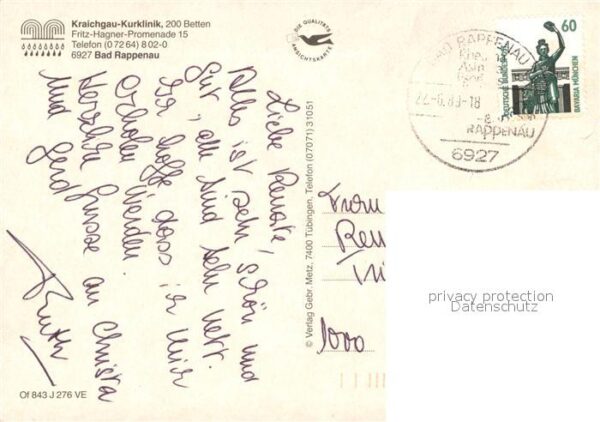 Kraichgau-Kurklinik, 200 Betten
Fritz-Hagner-Promenade 15
Telefon (0 72 64) 8 02-0
6927 Bad Rappenau
DIE QUALITÄTS
ANSICHTSKARTE
Liebe Renate,
Alles ist sehr schön und
gut, alle sind sehr nett.
Ich hoffe, dass ich mich
erholen werden.
Herzliche Grüsse an Christa
und Gerd
Ruth
© Verlag Gebr. Metz, 7400 Tübingen, Telefon (07071) 31051
RAPPENAU
-6.89-18
RAPPENAU
6927
60
DEUTSCHE BUNDESPOST
BAVARIA MÜNCHEN
Frau
Ren
1000
privacy protection
Datenschutz
Of 843 J 276 VE